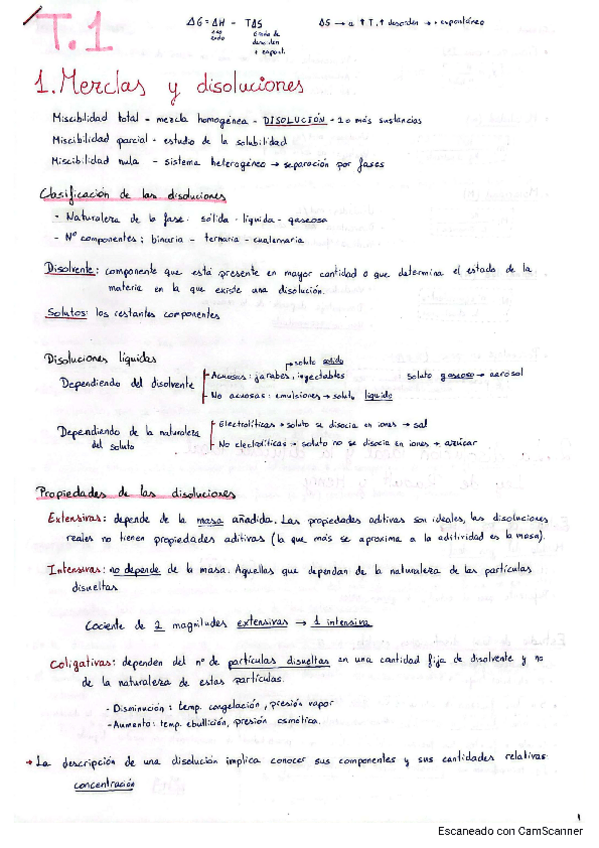 T.1
ΔG = ΔH - TΔS
ΔS → a ↑ T, ↑ desorden → + espontáneo
1. Mezclas y disoluciones
Miscibilidad total - mezcla homogénea - DISOLUCIÓN - 2 o más sustancias
Miscibilidad parcial - estudio de la solubilidad
Miscibilidad nula - sistema heterogéneo → separación por fases
Clasificación de las disoluciones
- Naturaleza de la fase: sólida - líquida - gaseosa
- Nº componentes: binaria - ternaria - cuaternaria
Disolvente: componente que está presente en mayor cantidad o que determina el estado de la
materia en la que existe una disolución.
Solutos: los restantes componentes
Disoluciones líquidas
→ soluto sólido
Dependiendo del disolvente
- Acuosas: jarabes, inyectables
soluto gaseoso → aerosol
- No acuosas: emulsiones → soluto líquido
Dependiendo de la naturaleza
del soluto
- Electrolíticas → soluto se disocia en iones → sal
- No electrolíticas → soluto no se disocia en iones → azúcar
Propiedades de las disoluciones
Extensivas: depende de la masa añadida. Las propiedades aditivas son ideales, las disoluciones
reales no tienen propiedades aditivas (la que más se aproxima a la aditividad es la masa).
Intensivas: no depende de la masa. Aquellas que dependan de la naturaleza de las partículas
disueltas
Cociente de 2 magnitudes extensivas → 1 intensiva
Coligativas: dependen del nº de partículas disueltas en una cantidad fija de disolvente y no
de la naturaleza de estas partículas.
- Disminución: temp. congelación, presión vapor
- Aumento: temp. ebullición, presión osmótica.
→ La descripción de una disolución implica conocer sus componentes y sus cantidades relativas
concentración
1
Escaneado con CamScanner